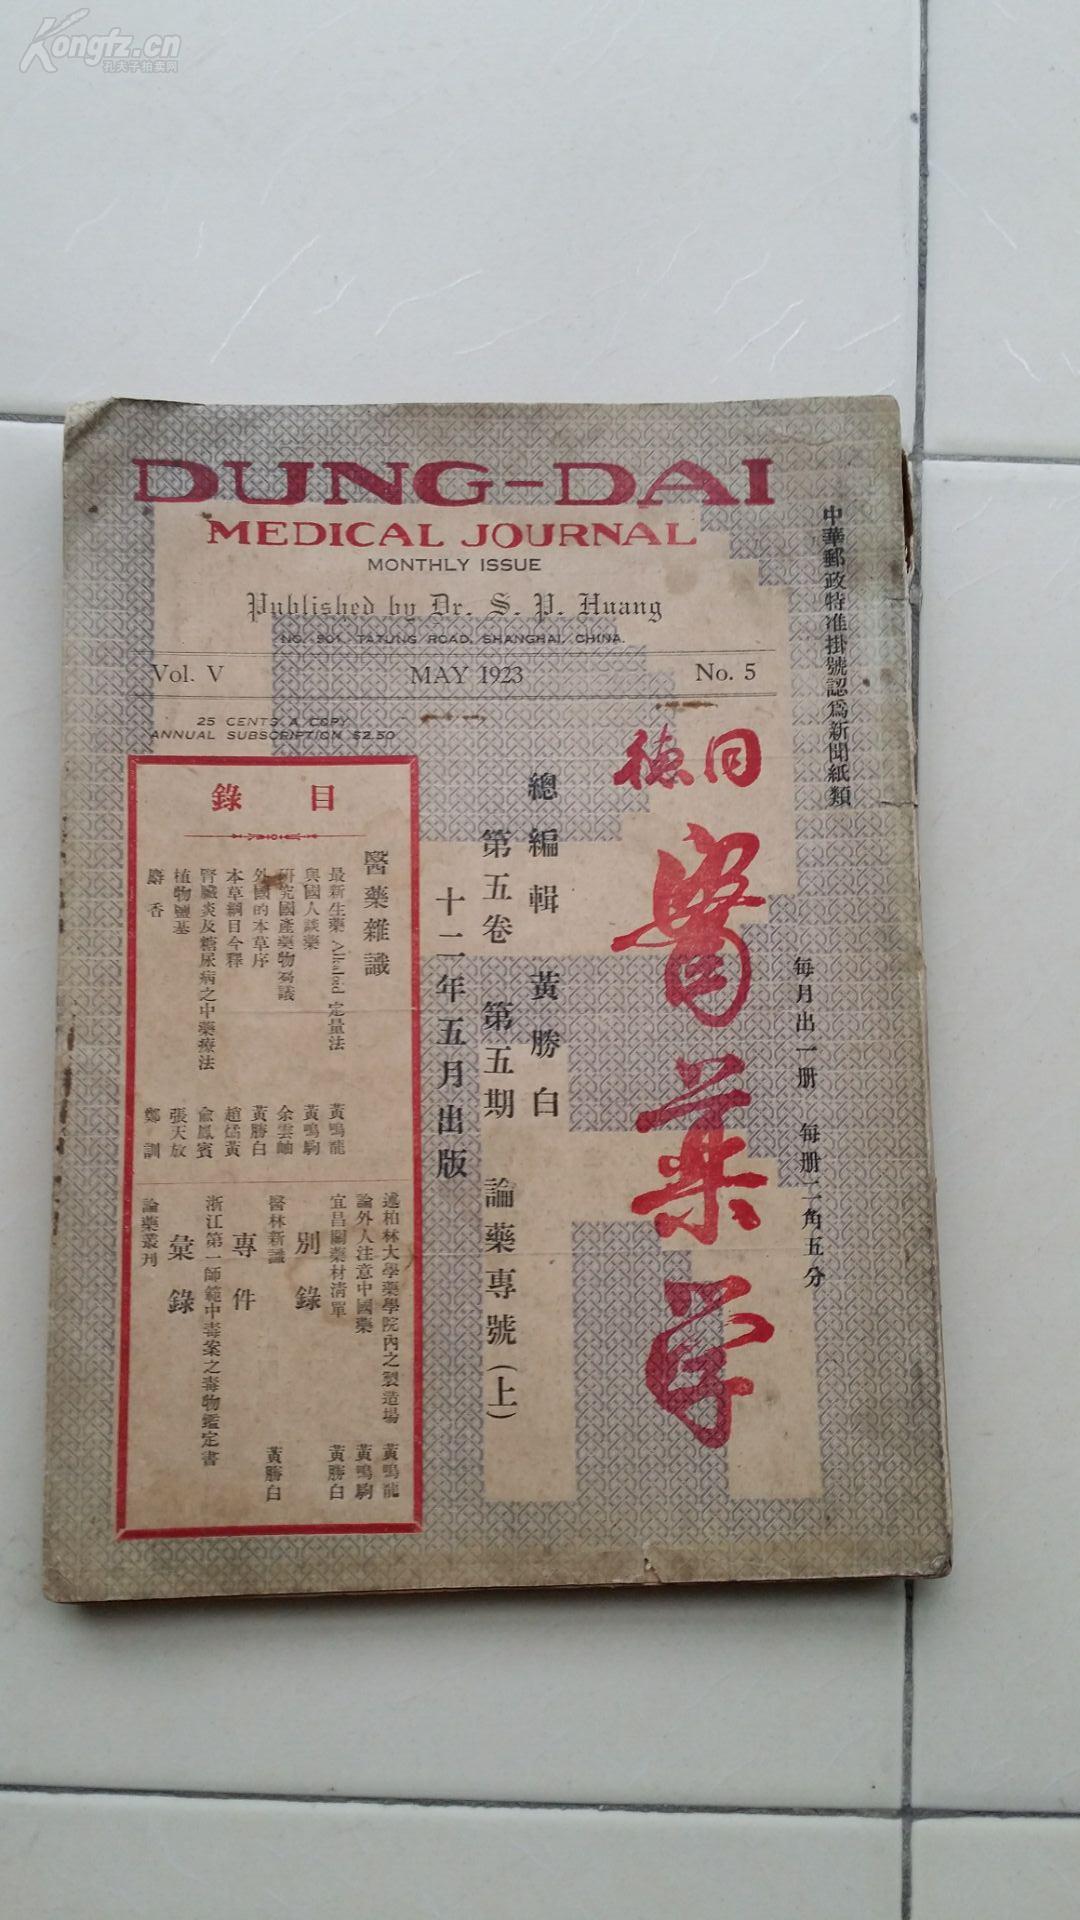 Kongfz.cn
孔夫子拍卖网
DUNG-DAI
MEDICAL JOURNAL
MONTHLY ISSUE
Published by Dr. S. P. Huang
NO. 901, TATUNG ROAD, SHANGHAI, CHINA.
Vol. V MAY 1923 No. 5
25 CENTS A COPY
ANNUAL SUBSCRIPTION $2.50
中華郵政特准掛號認爲新聞紙類
每月出一册 每册二角五分
同德
醫藥学
總編輯 黃勝白
第五卷 第五期 論藥專號(上)
十二年五月出版
目錄
醫藥雜識
最新生藥 Alkaloid 定量法 黃鳴龍
與國人談藥 黃鳴駒
研究國產藥物芻議 余雲岫
外國的本草序 黃勝白
本草綱目今釋 趙燏黃
腎臟炎及糖尿病之中藥療法 俞鳳賓
植物鹽基 張天放
麝香 鄭訓
述柏林大學藥學院內之製造場 黃鳴龍
論外人注意中國藥 黃鳴駒
宜昌關藥材淸單 黃勝白
別錄
醫林新識 黃勝白
專件
浙江第一師範中毒案之毒物鑑定書
彙錄
論藥叢刊